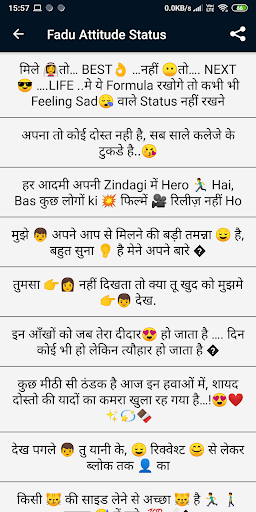 15:57
0.0KB/s
66
Fadu Attitude Status
मिले 👰तो... BEST👌 ...नहीं 😶तो.... NEXT
😎 ....LIFE ..मे ये Formula रखोगे तो कभी भी
Feeling Sad😪 वाले Status नहीं रखने
अपना तो कोई दोस्त नही है, सब साले कलेजे के
टुकडे है..😘
हर आदमी अपनी Zindagi में Hero 🏃‍♂️ Hai,
Bas कुछ लोगों ki 💥 फिल्में 🎥 रिलीज़ नहीं Ho
मुझे 👦 अपने आप से मिलने की बड़ी तमन्ना 😉 है,
बहुत सुना 👂 है मेने अपने बारे �
तुमसा 👉👩 नहीं दिखता तो क्या तू खुद को मुझमे
👉👦 देख.
इन आँखों को जब तेरा दीदार😍 हो जाता है .... दिन
कोई भी हो लेकिन त्यौहार हो जाता है �
कुछ मीठी सी ठंडक है आज इन हवाओं में, शायद
दोस्तो की यादों का कमरा खुला रह गया है...!😍❤️
✨💫🍫
देख पगले 👦 तु यानी के, 😉 रिक्वेश्ट 🙂 से लेकर
ब्लोक तक 👤 का
किसी 😼 की साइड लेने से अच्छा 😼 है 🚶‍♂️🚶